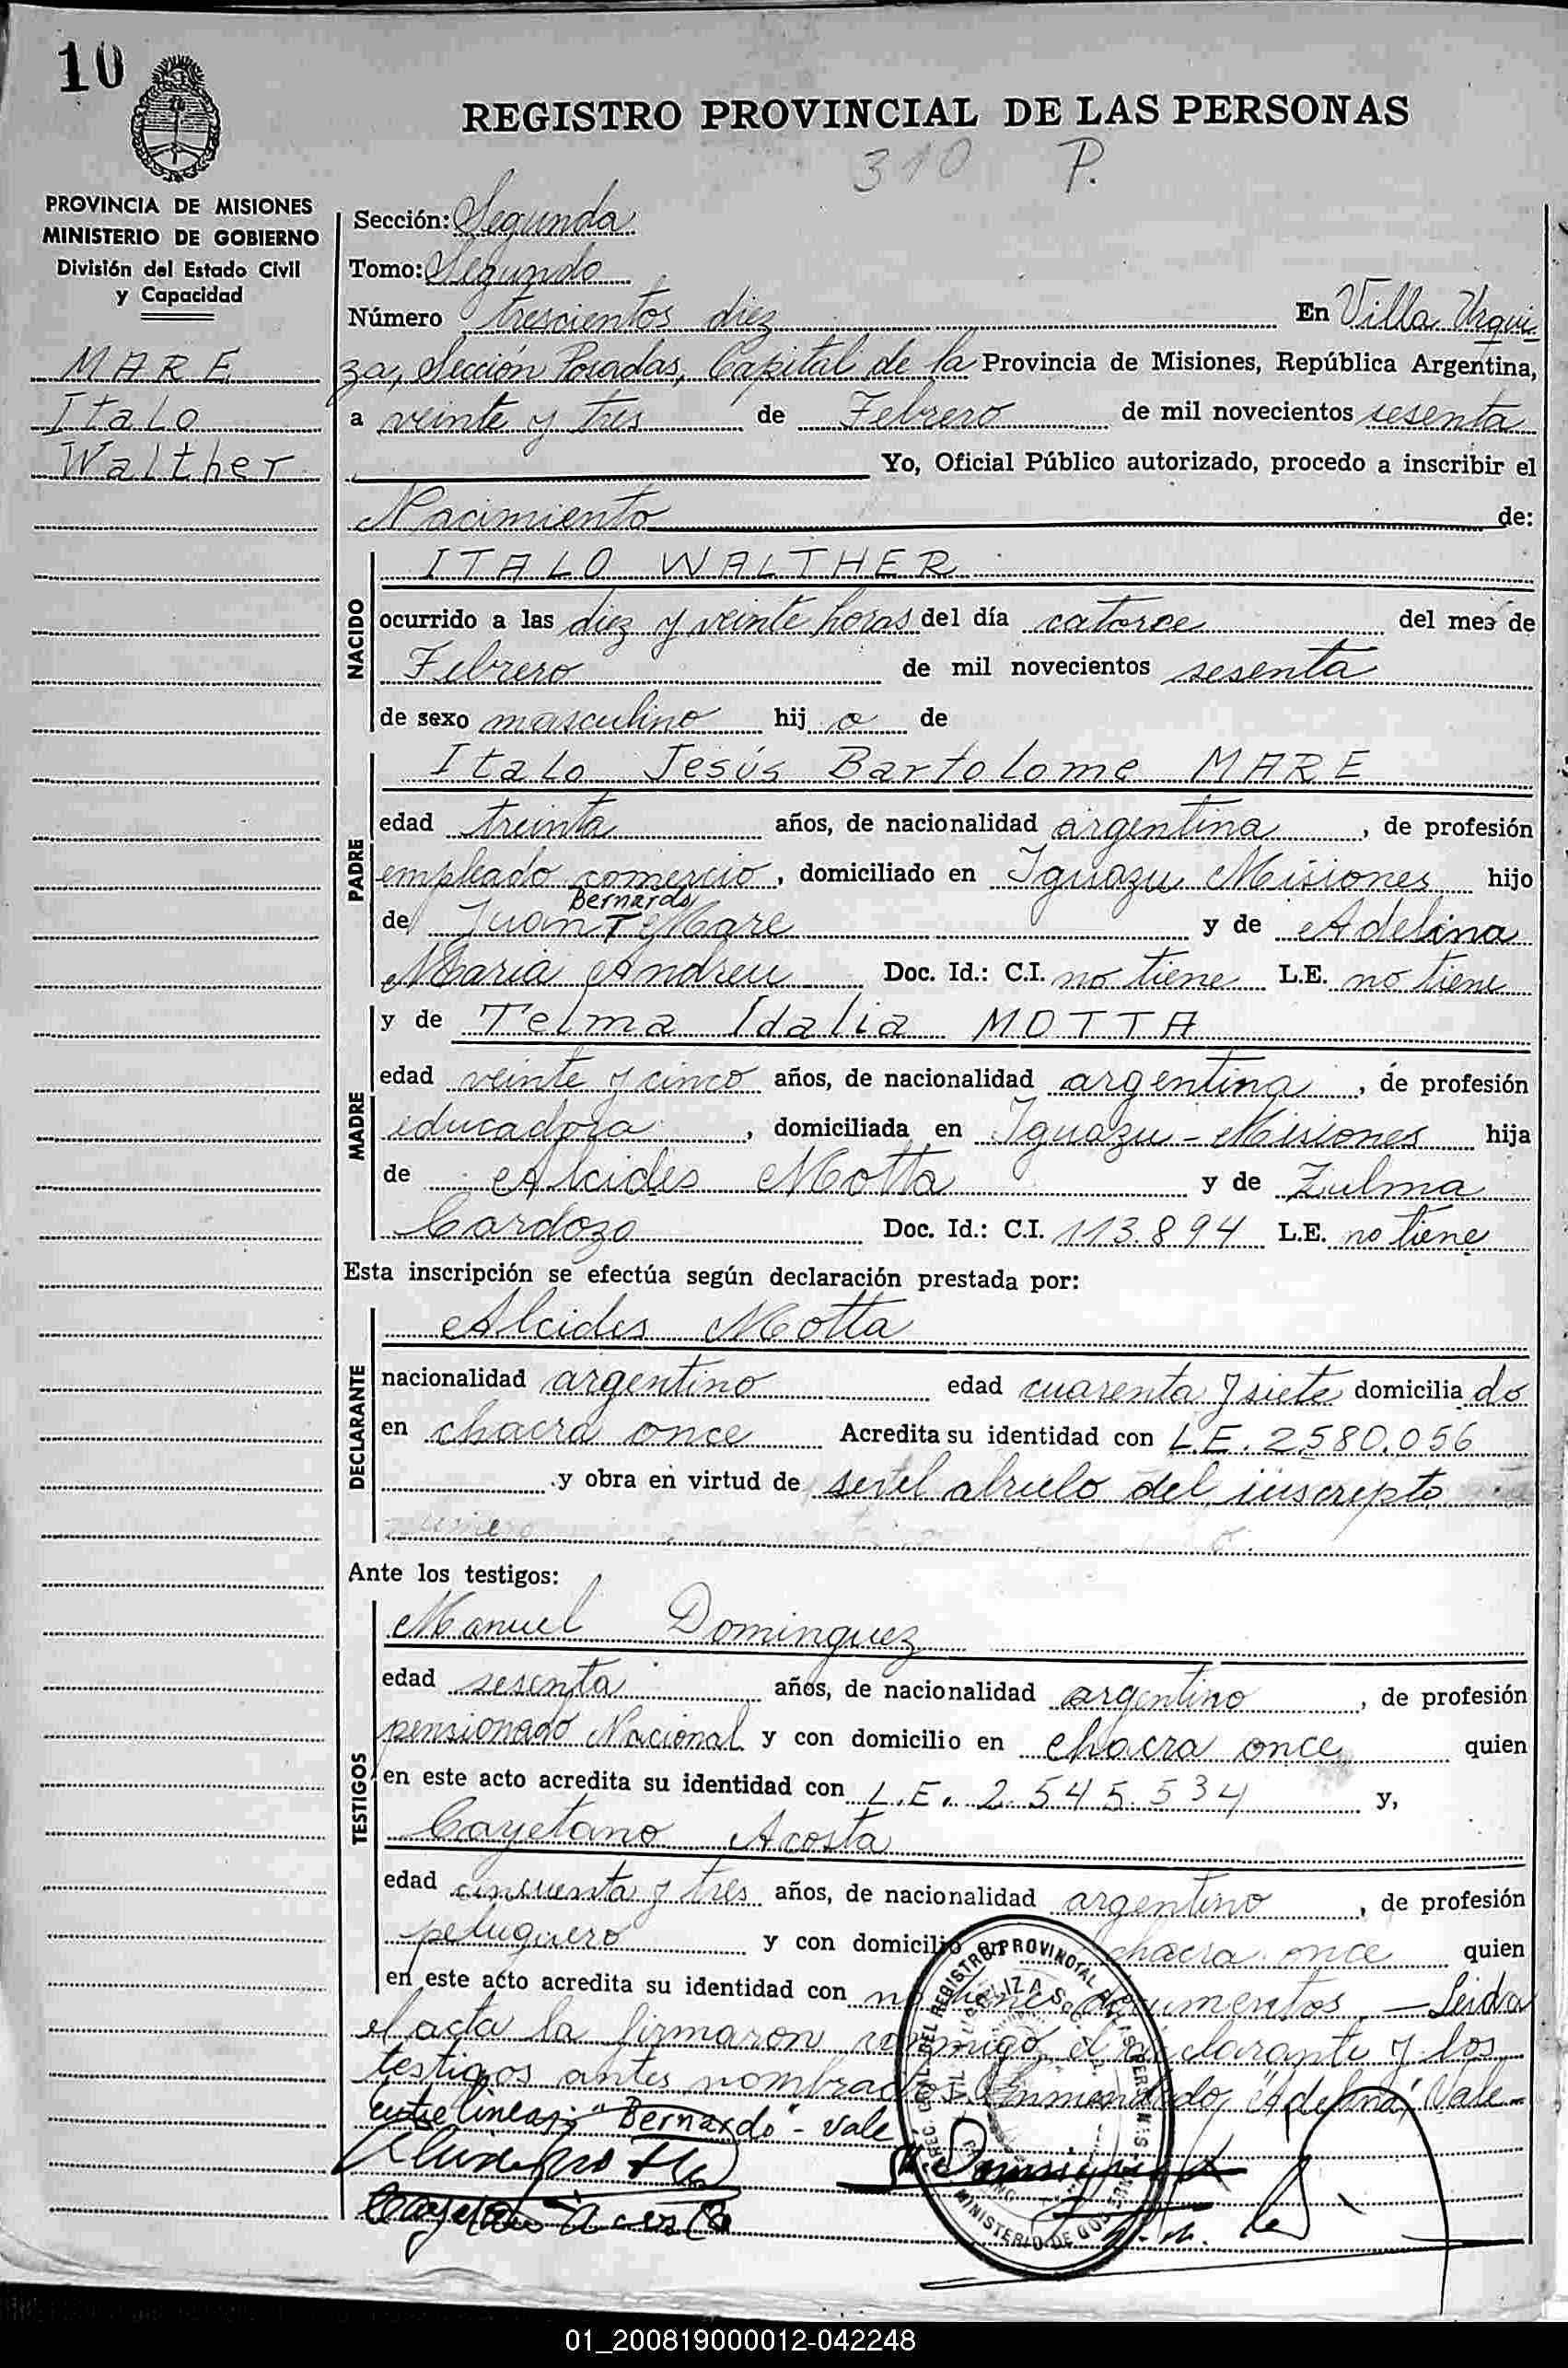 10
REGISTRO PROVINCIAL DE LAS PERSONAS
310 P.
PROVINCIA DE MISIONES
MINISTERIO DE GOBIERNO
División del Estado Civil
y Capacidad
MARE
Italo
Walther
Sección: Segunda
Tomo: Segundo
Número trescientos diez En Villa Urqui
za, Sección Posadas, Capital de la Provincia de Misiones, República Argentina,
a veinte y tres de Febrero de mil novecientos sesenta
Yo, Oficial Público autorizado, procedo a inscribir el
Nacimiento de:
NACIDO
ITALO WALTHER
ocurrido a las diez y veinte horas del día catorce del mes de
Febrero de mil novecientos sesenta
de sexo masculino hij o de
PADRE
Italo Jesús Bartolome MARE
edad treinta años, de nacionalidad argentina, de profesión
empleado comercio, domiciliado en Iguazu Misiones hijo
Bernardo
de Juan Mare y de Adelina
Maria Andreu Doc. Id.: C.I. no tiene L.E. no tiene
MADRE
y de Telma Idalia MOTTA
edad veinte y cinco años, de nacionalidad argentina, de profesión
educadora, domiciliada en Iguazu - Misiones hija
de Alcides Motta y de Zulma
Cardozo Doc. Id.: C.I. 113.894 L.E. no tiene
Esta inscripción se efectúa según declaración prestada por:
DECLARANTE
Alcides Motta
nacionalidad argentino edad cuarenta y siete domicilia do
en chacra once Acredita su identidad con L.E. 2580.056
y obra en virtud de ser el abuelo del inscripto
Ante los testigos:
TESTIGOS
Manuel Dominguez
edad sesenta años, de nacionalidad argentino, de profesión
pensionado Nacional y con domicilio en chacra once quien
en este acto acredita su identidad con L.E. 2.545.534 y,
Cayetano Acosta
edad cincuenta y tres años, de nacionalidad argentino, de profesión
peluquero y con domicilio en chacra once quien
en este acto acredita su identidad con no tiene documentos - Leida
el acta la firmaron conmigo, el declarante y los
testigos antes nombrados. Enmendado, "Adelina", Vale-
entre lineas: "Bernardo" - vale
Cayetano Acosta
MINISTERIO DE GOB
01_200819000012-042248